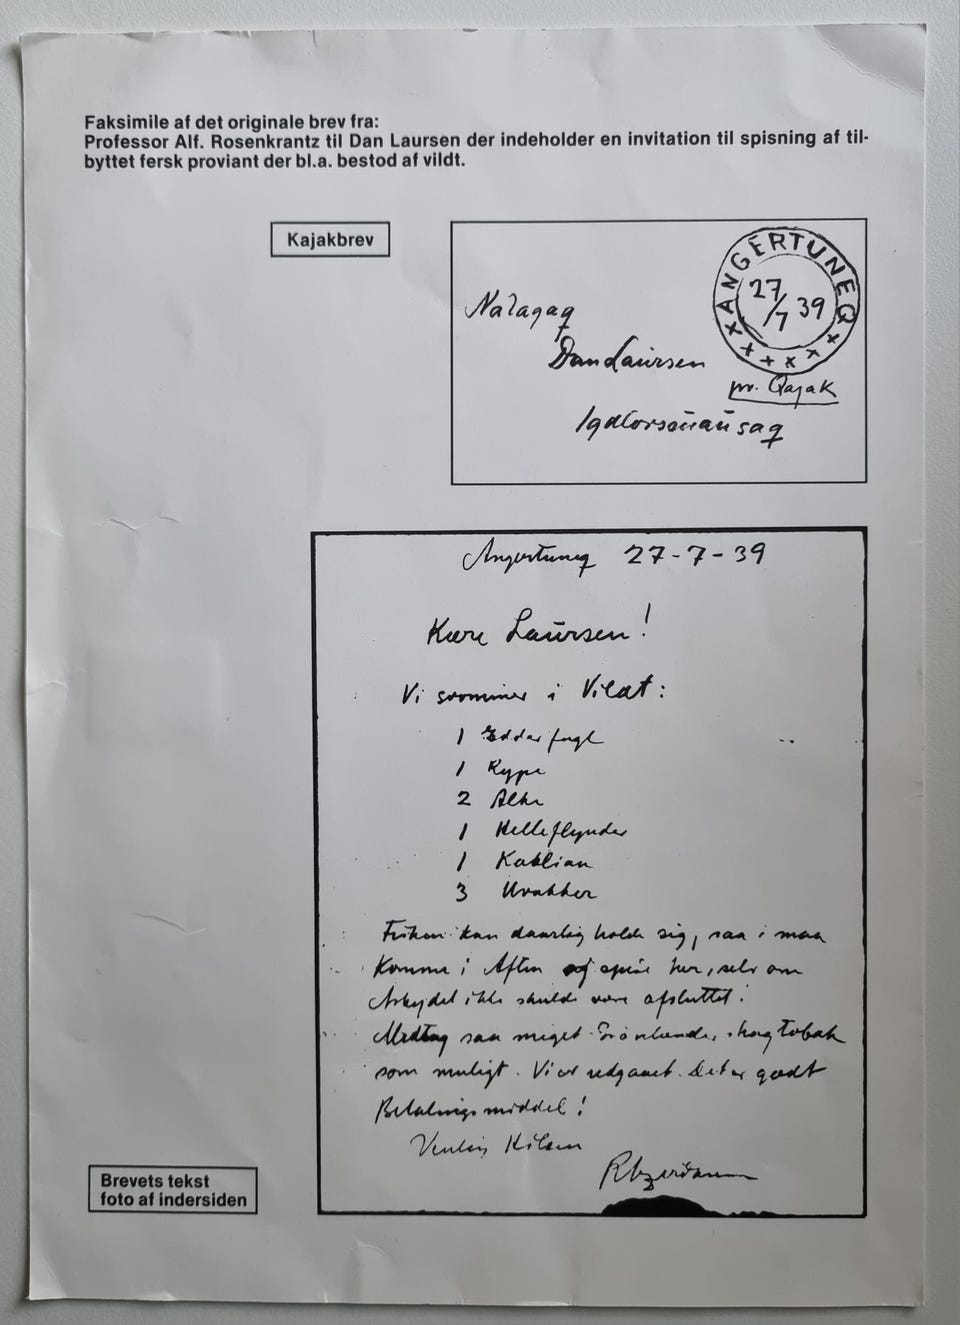 Faksimile af det originale brev fra:
Professor Alf. Rosenkrantz til Dan Laursen der indeholder en invitation til spisning af til-
byttet fersk proviant der bl.a. bestod af vildt.
Kajakbrev
ANGERTUNEQ
27/7 39
Nalagaq
Dan Laursen
pr. Qajak
Igdlorssuaussaq
Angertuneq 27-7-39
Kære Laursen!
Vi svømmer i Vildt:
1 Edderfugl
1 Rype
2 Alke
1 Helleflynder
1 Kablian
3 Uvakker
Fisken kan daarlig holde sig, saa i maa
komme i Aften og spise her, selv om
Arbejdet ikke skulde være afsluttet.
Medtag saa meget Grønlænder skraatobak
som muligt. Vi er udgaaet. Det er godt
Betalingsmiddel!
Venlig Hilsen
Brevets tekst
foto af indersiden